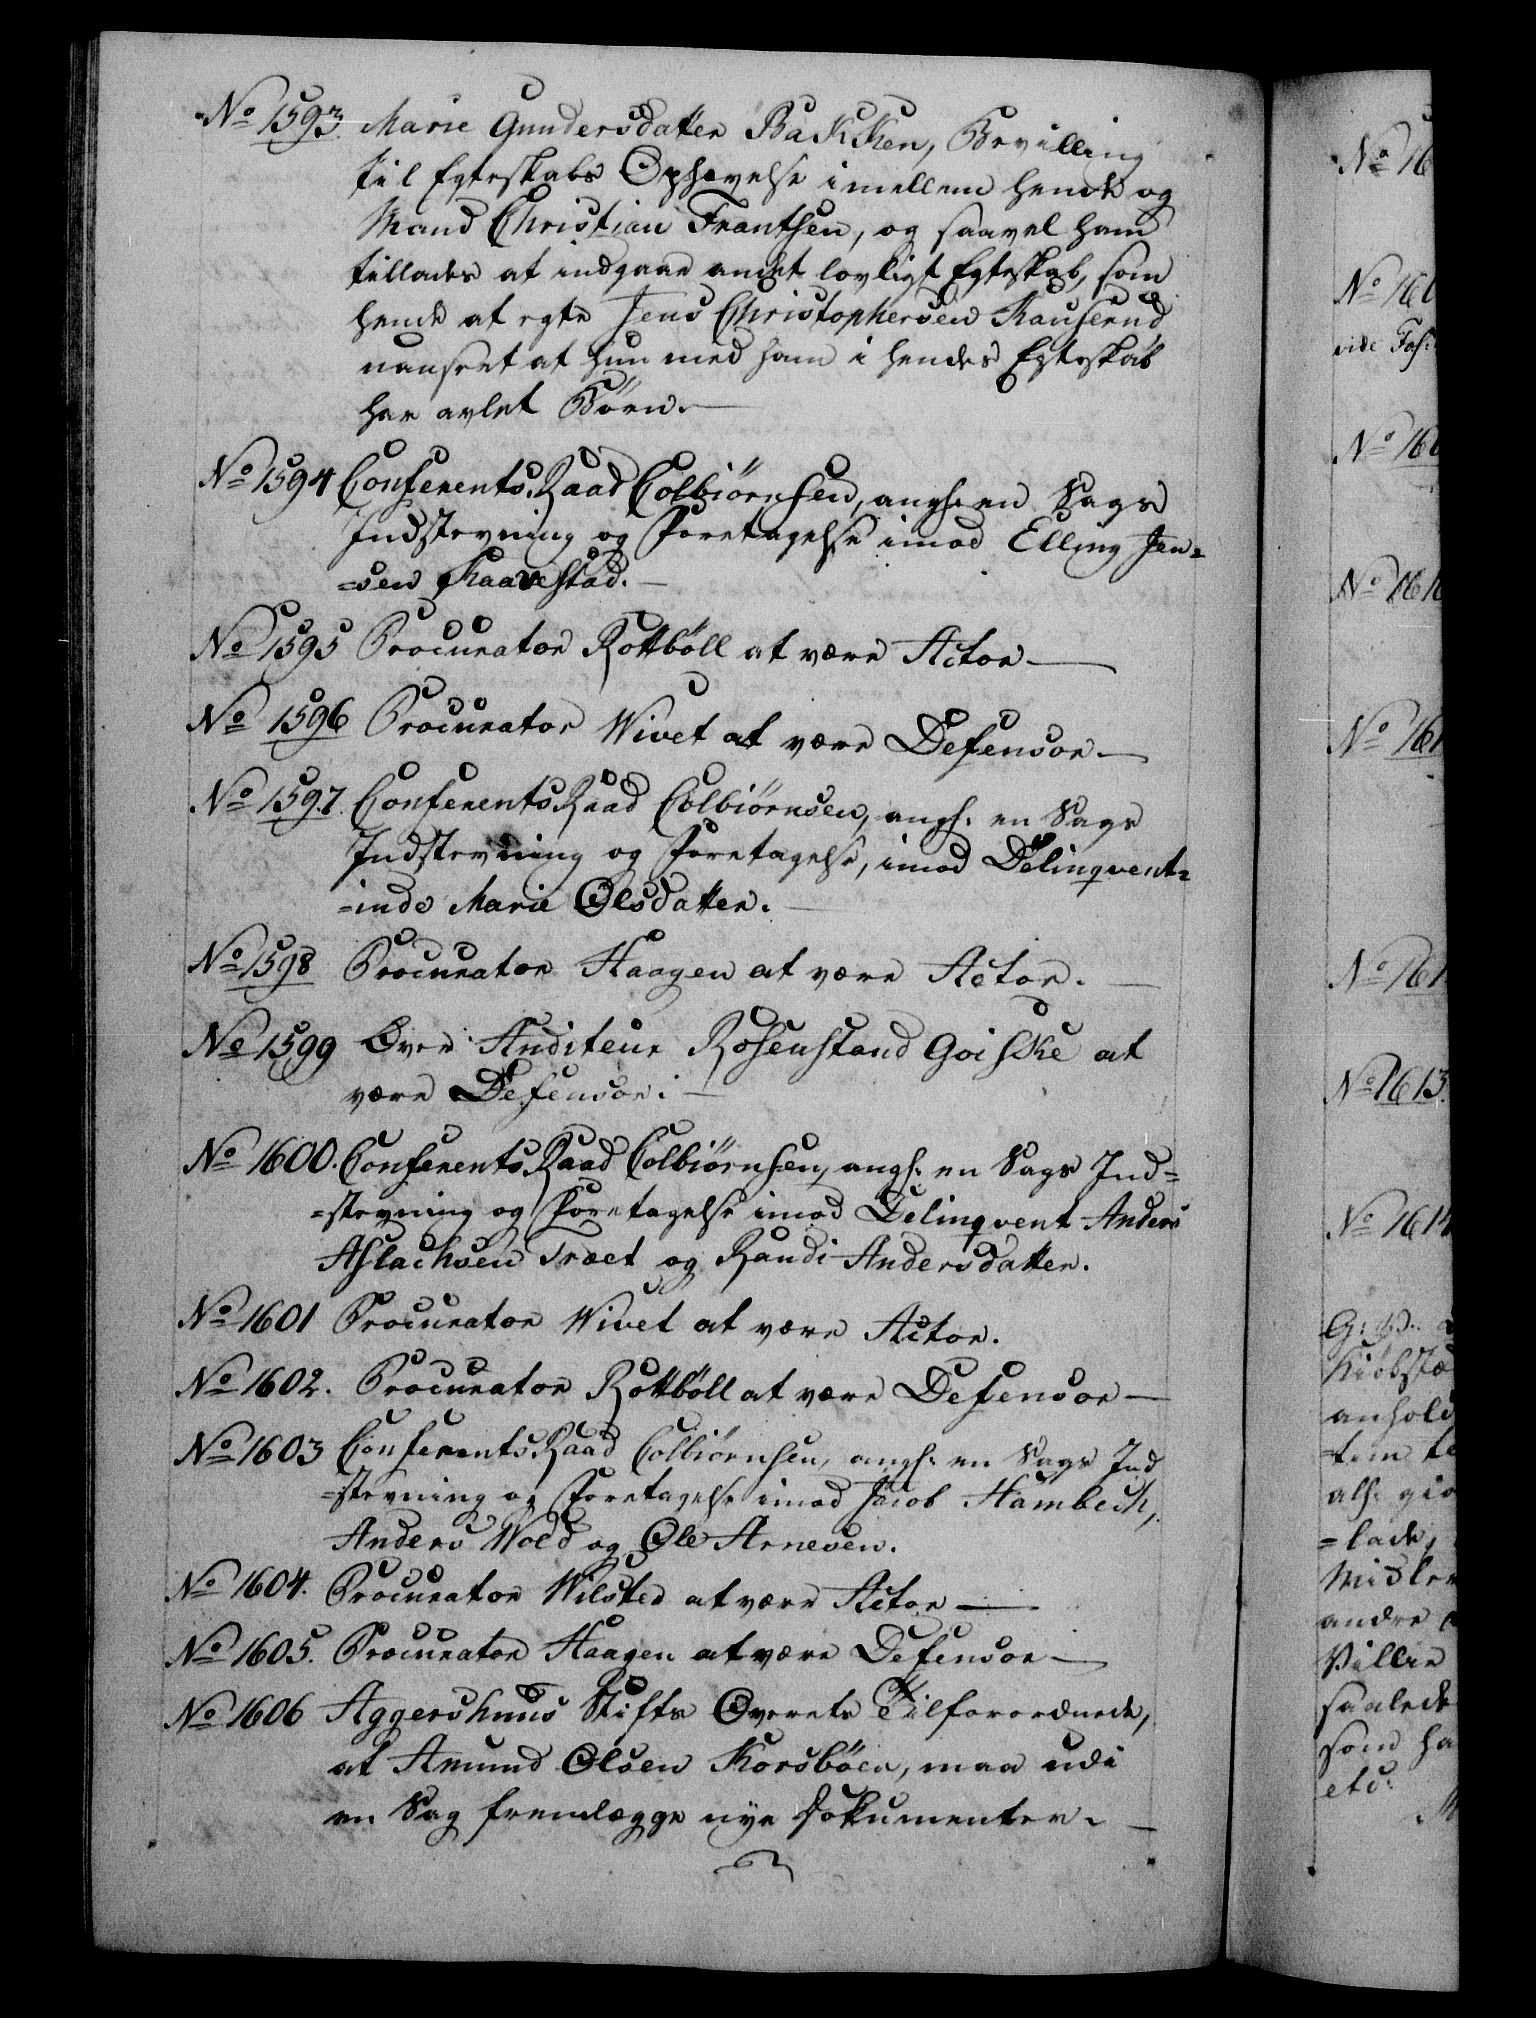 No 1593. Marie Gundersdatter Bakken, Bevilling
til Egteskabs Ophævelse imellem hende og
Mand Christian Frantsen, og saavel ham
tillades at indgaae andet lovligt Egteskab, som
hende at egte Jens Christophersen Kauserud
uanseet at hun med ham i hendes Egteskab
har avlet Børn.
No 1594 Conferents Raad Colbiørnsen, angh: en Sags
Indstevning og Foretagelse imod Elling Jen=
=sen Raavestad.
No 1595 Procurator Rottbøll at være Actor
No 1596 Procurator Wivet at være Defensor
No 1597. Conferents Raad Colbiørnsen, angh. en Sags
Indstevning og Foretagelse, imod Delinqvent=
=inde Marie Olsdatter.
No 1598 Procurator Haagen at være Actor.
No 1599 Over Auditeur Rosenstand Goiske at
være Defensor.
No 1600. Conferents Raad Colbiørnsen, angh: en Sags Ind=
=stevning og Foretagelse imod Delinqvent Anders
Aslachsen Træet og Randi Andersdatter.
No 1601 Procurator Wivet at være Actor.
No 1602. Procurator Rottbøll at være Defensor
No 1603 Conferents Raad Colbiørnsen, angh: en Sags Ind
=stevning og Foretagelse imod Jacob Hambech,
Anders Wold og Ole Arnesen.
No 1604. Procurator Wilsted at være Actor
No 1605. Procurator Haagen at være Defensor
No 1606 Aggershuus Stifts Overets Tilforordnede,
at Amund Olsen Korsbøen, maa udi
en Sag fremlægge nye Dokumenter.
No 16
No 160
vide Fol:
No 160
No 1610
No 161
No 161
No 1613.
No 1614
Kiøbstæd
anhold
=tem te
alh: giø
=lade,
Midler
andre
Villie
saalede
som ha
etc: